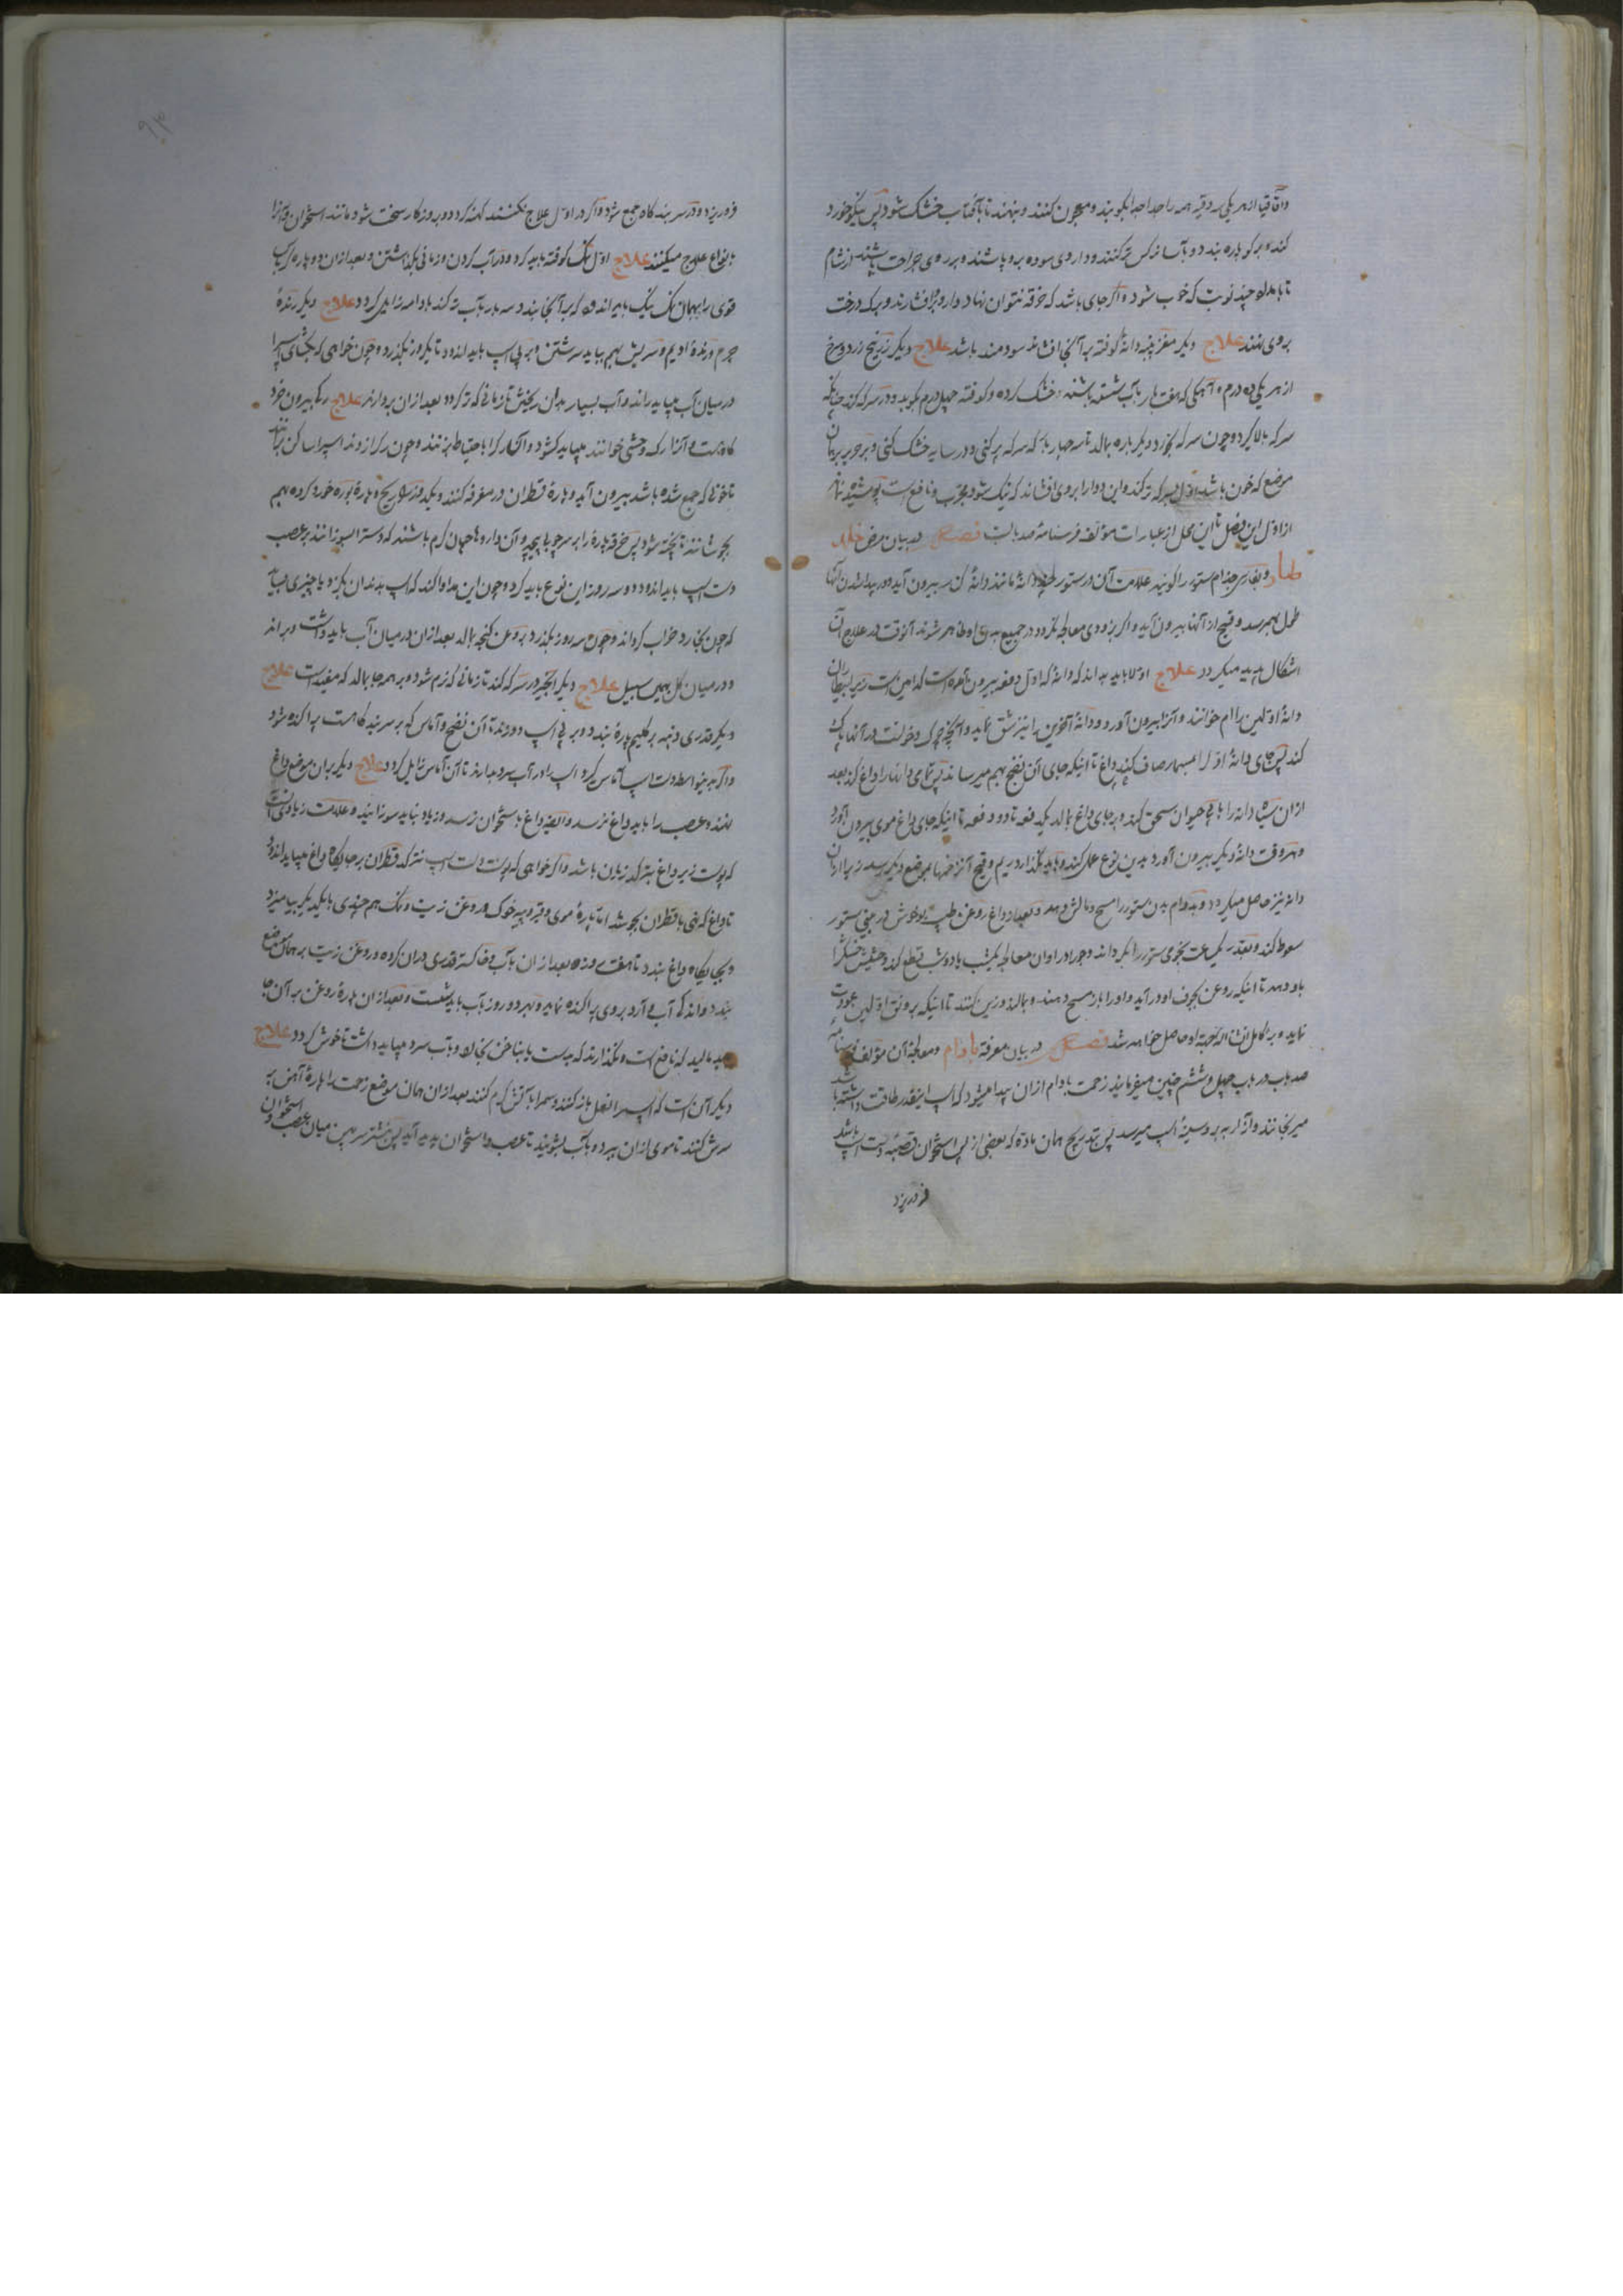 واقاقیا از هر یکی سه وقیه همه را جدا جدا بکوبند و معجون کنند و بنهند تا بآفتاب خشک شود پس نیکو خورد
کند و بر کو پاره بندد و بآب نرکس تر کنند و داروی سوده برو پاشند و بر روی جراحت باشند از شام
تا بامداد چند نوبت که خوب شود و اگر جای باشد که خرقه نتوان نهاد دارو برافشارند و برک درخت
بروی نهند علاج دیگر مغز پنبه دانهٔ کوفته بر آنجا افشاند سودمند باشد علاج دیگر زرنیخ زرد و سرخ
از هر یکی ده درم و آهکی که هفت بار بآب شسته باشند خشک کرده و کوفته چهل درم بکوبد و در سرکه کند چنانکه
سرکه بالا کیرد و چون سرکه بخورد دیگر باره بمالد تا سه چهار بار که سرکه پر کنی و در سایه خشک کنی و بر حریر بریزان
موضع که خون باشد اول بسرکه تر کند و این دوا را بروی افشاند که نیک شود مجرب و نافع است پوشیده نماند
از اول این فصل تا این محل از عبارات مؤلف فرسنامهٔ صد بابست فصل در بیان مرض خلد
طیار و بفارسی جذام ستور را کویند علامت آن در ستور چند دانهٔ مانند دانهٔ کن سر بیرون آید و در پیدا شدن آنها
طول بهم رسد و قیح از آنها بیرون آید و اگر بزودی معالجه نکردد در جمیع بدن او ظاهر شوند آنوقت در علاج آن
اشکال پدید میکردد علاج اولا باید بداند که دانهٔ که اول دفعه بیرون آمده است کدامین است زیرا بیطاران
دانهٔ اولین را ام خوانند و آنرا بیرون آورد و دانهٔ آخرین را نیز شق نماید و آنچه چرک و خونست در آنها پاک
کند پس جای دانهٔ اول را بمسمار صاف کند و داغ تا اینکه جای آن نضج بهم میرساند پس تمامی دانها را داغ کند بعد
از آن سیاه دانه را با پی حیوان سحق کند و بر جای داغ بمالد یکدفعه تا دو دفعه تا اینکه جای داغ موی بیرون آورد
و هر وقت دانهٔ دیگر بیرون آورد بدین نوع عمل کند و باید نگذارد ریم و قیح آنزخمها بموضع دیگر رسد زیرا از آن
دانه نیز حاصل میکردد و بدوام بدن ستور را مسح و مالش دهد و بعد از داغ روغن طیب بو خوش در بینی ستور
سعوط کند و بقدر یکساعت نجومی ستور را بکرداند و جو را در اوان معالجه یکشب یا دو شب قطع کند و حشیش خشک را
باو دهد تا اینکه روغن بجوف او درآید و او را باز مسح دهند و بمالند و زین کنند تا اینکه برونق اولین عودت
نماید و برء کامل انشاءالله بجهة او حاصل خواهد شد فصل در بیان معرفة بادام و معالجهٔ آن مؤلف فرسنامهٔ
صد باب در باب چهل و ششم چنین میفرماید زحمت بادام از آن پیدا میشود که اسپ اینقدر طاقت داشته باشد
میرنجانند و آزار بر پر و سینهٔ اسپ میرسد پس بتدریج همان ماده که بعضی از پس استخوان قصبهٔ دست اسپ باشد
فرو ریزد
فرو ریزد و در سر بند کاه جمع شود و اگر در اول علاج نکنند کهنه کردد و بروزکار سخت شود مانند استخوان و آنرا
بانواع علاج میکنند علاج اول نمک کوفته باید کرد و در آب کردن و زمانی بگذاشتن و بعد از آن دو پاره کرباس
قوی را بهمان نمک نیک بیالاید و که بر آنجا بندد سه بار بآب تر کند بادامه زایل کردد علاج دیگر رندهٔ
چرم و رندهٔ ادیم و سریش بهم بباید سرشتن و بر پی اسپ باید اندود تا یکروز بگذرد و چون خواهی که بکشای اسپ را
در میان آب میباید راند و آب بسیار بدان ریختن تا زمانی که تر کردد بعد از آن بردارند علاج رکها بیرون خرد
کاه است و آنرا رک وحشی خوانند میباید کشود و آن کار را باحتیاط بزنند و چون رک را زدند اسپ را ساکن برانند
تا خونی که جمع شده باشد بیرون آید و پارهٔ قطران در مغرفه کنند و یکدو زرنیخ و پارهٔ بوره خورد کرده بهم
بجوشانند تا پخته شود پس خرقه پارهٔ را بر سر چوبا پیچد و آن داروها چنان کرم باشند که دست را بسوزانند بر عصب
دست اسپ باید اندود دو سه روز این نوع باید کرد و چون این مداوا کند که اسپ بدندان بکیرد یا چیزی نمالد
که چون بخارد خراب کرداند و چون سه روز بگذرد بروغن کنجد بمالد بعد از آن در میان آب باید داشت و براند
و در میان کل بهمین سبیل علاج دیگر انجیر در سرکه کند تا زمانی که نرم شود و بر همه جا بمالد که مفید است علاج
دیگر قدری دنبه بر کلیم پارهٔ بندد و بر پی اسپ دوزند تا آن نضج و آماس که بر سر بند کاه است پراکنده شود
و اگر بدینواسطه دست اسپ آماس کیرد اسپ را در آب سرد بدارند تا آن آماس زایل کردد علاج دیگر بران موضع داغ
نهند و عصب را باید داغ نرسد و البته داغ باستخوان نرسد و زیاد نباید سوزانید و علامت زیادتی آنست
که پوست زیر داغ بترکد زیان باشد و اگر خواهی که پوست دست اسپ نترکد قطران بر جایکاه داغ میباید اندود
تا داغ که نهی با قطران بجوشد اما پارهٔ موی و قیر و پیه خوک و روغن زیت و نمک هم چندی بایکدیکر بیامیزد
و بجایکاه داغ بندد تا هفت روز و بعد از آن بآب و خاکستر قدری در آن کرده و روغن زیت بر همان موضع
بندد و اندکی آب و آرد بروی پراکنده نماید و بهر دو روز بآب باید شست و بعد از آن پارهٔ روغن بر آن جا
بباید مالید که نافع است و نگذارند که بدست یا بناخن بخارد و بآب سرد میباید داشت تا خوش کردد علاج
دیگر آن است که اسپ را نعل باز کنند و سم را بآتش کرم کنند بعد از آن همان موضع زحمت را پارهٔ آهن بر
سرش کنند تا موی از آن ببرد و بآب بشویند تا عصب و استخوان پدید آید پس نشتر سر پهن میان عصب و استخوان